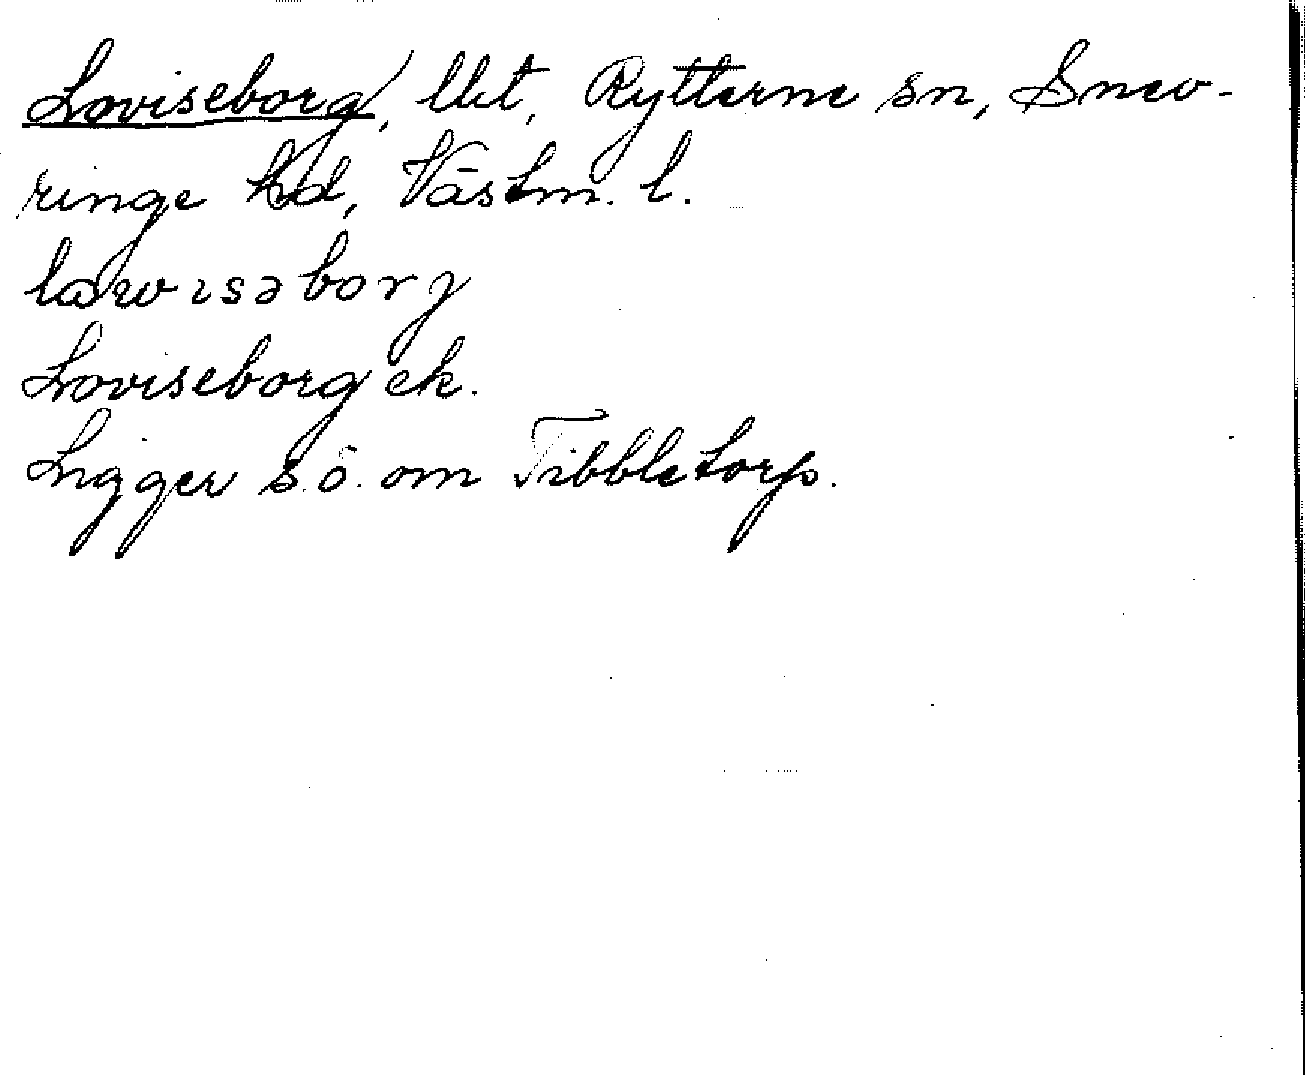 Loviseborg, lht, Rytterne sn, Snev-
ringe hd, Västm. l.
lawɩsəborj
Loviseborg ek.
Ligger s.ö. om Tibbletorp.